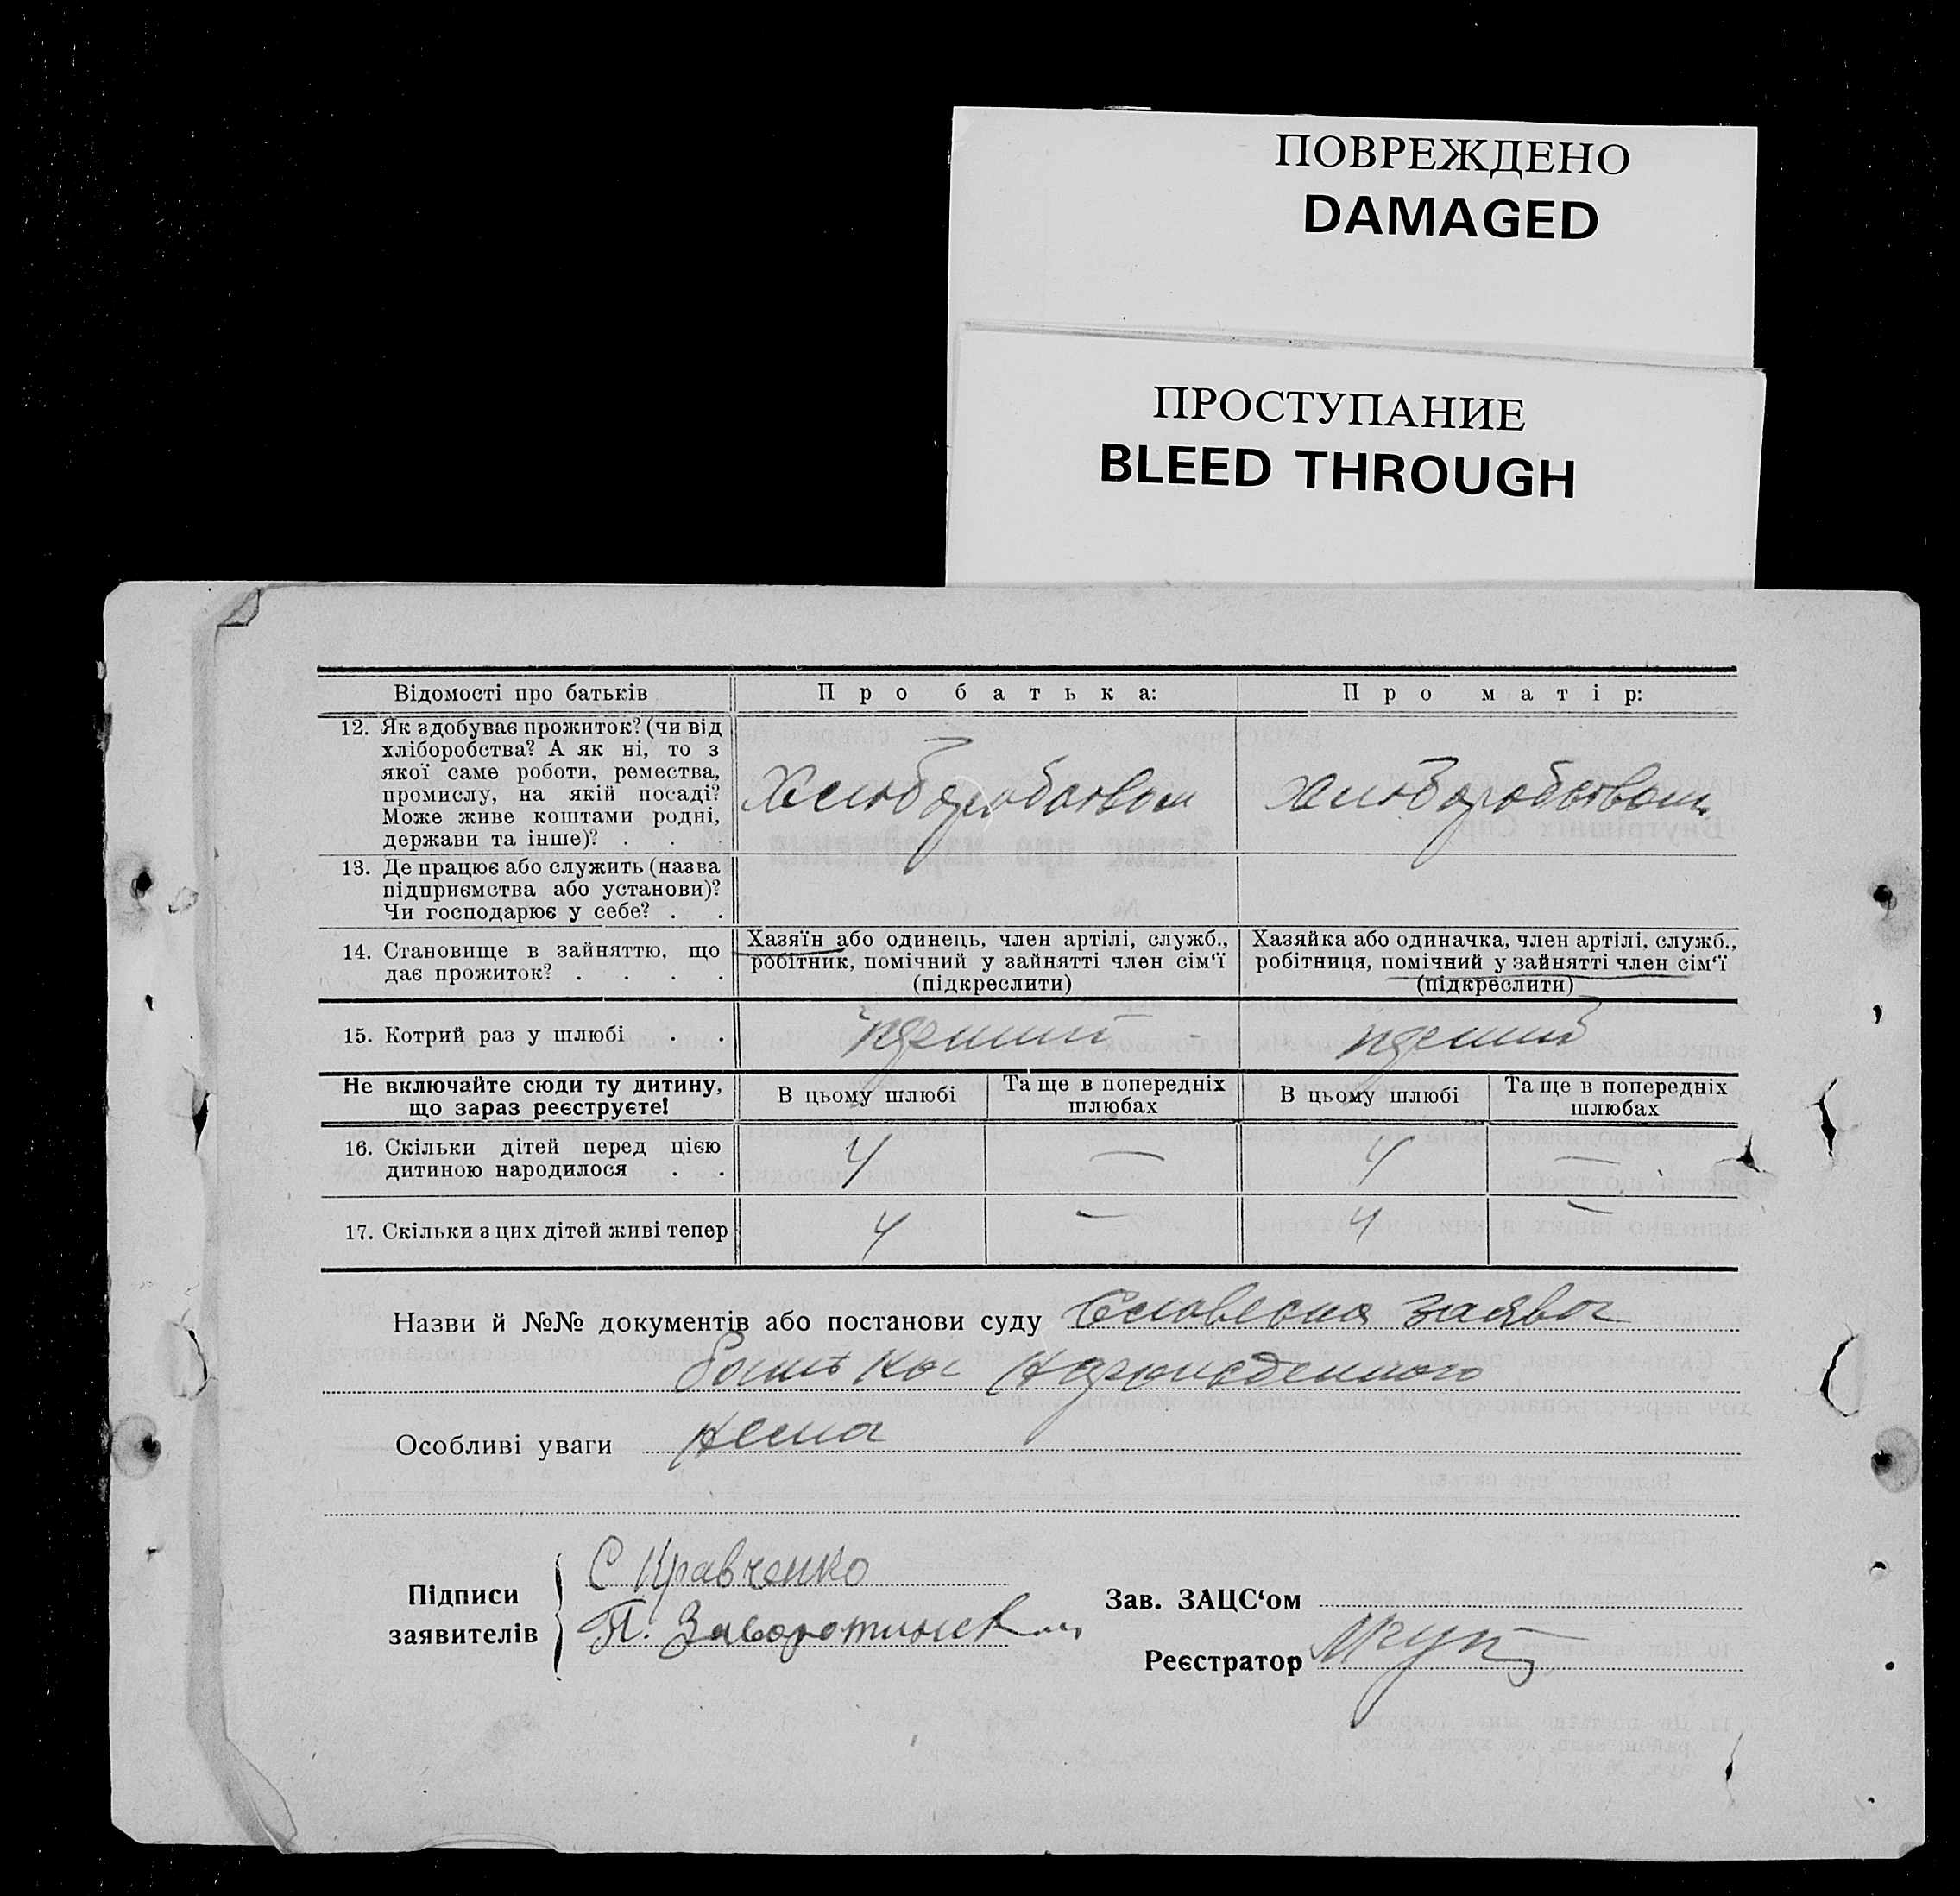 ПОВРЕЖДЕНО
DAMAGED
ПРОСТУПАНИЕ
BLEED THROUGH
Відомості про батьків Про батька: Про матір:
12. Як здобуває прожиток? (чи від
хліборобства? А як ні, то з
якої саме роботи, ремества,
промислу, на якій посаді?
Може живе коштами родні,
держави та інше)? . . .
Хлюборобством Хлюборобством
13. Де працює або служить (назва
підприємства або установи)?
Чи господарює у себе? . .
14. Становище в зайняттю, що
дає прожиток? . . . .
Хазяїн або одинець, член артілі, служб.,
робітник, помічний у зайнятті член сім‘ї
(підкреслити)
Хазяйка або одиначка, член артілі, служб.,
робітниця, помічний у зайнятті член сім‘ї
(підкреслити)
15. Котрий раз у шлюбі . . перший перший
Не включайте сюди ту дитину,
що зараз реєструєте!
В цьому шлюбі
Та ще в попередніх
шлюбах
В цьому шлюбі
Та ще в попередніх
шлюбах
16. Скільки дітей перед цією
дитиною народилося . .
4 — 4 —
17. Скільки з цих дітей живі тепер 4 — 4 —
Назви й №№ документів або постанови суду Словесна заява
батька
Особливі уваги нема
Підписи
заявителів
С Кравченко
П.
Зав. ЗАЦС‘ом
Реєстратор